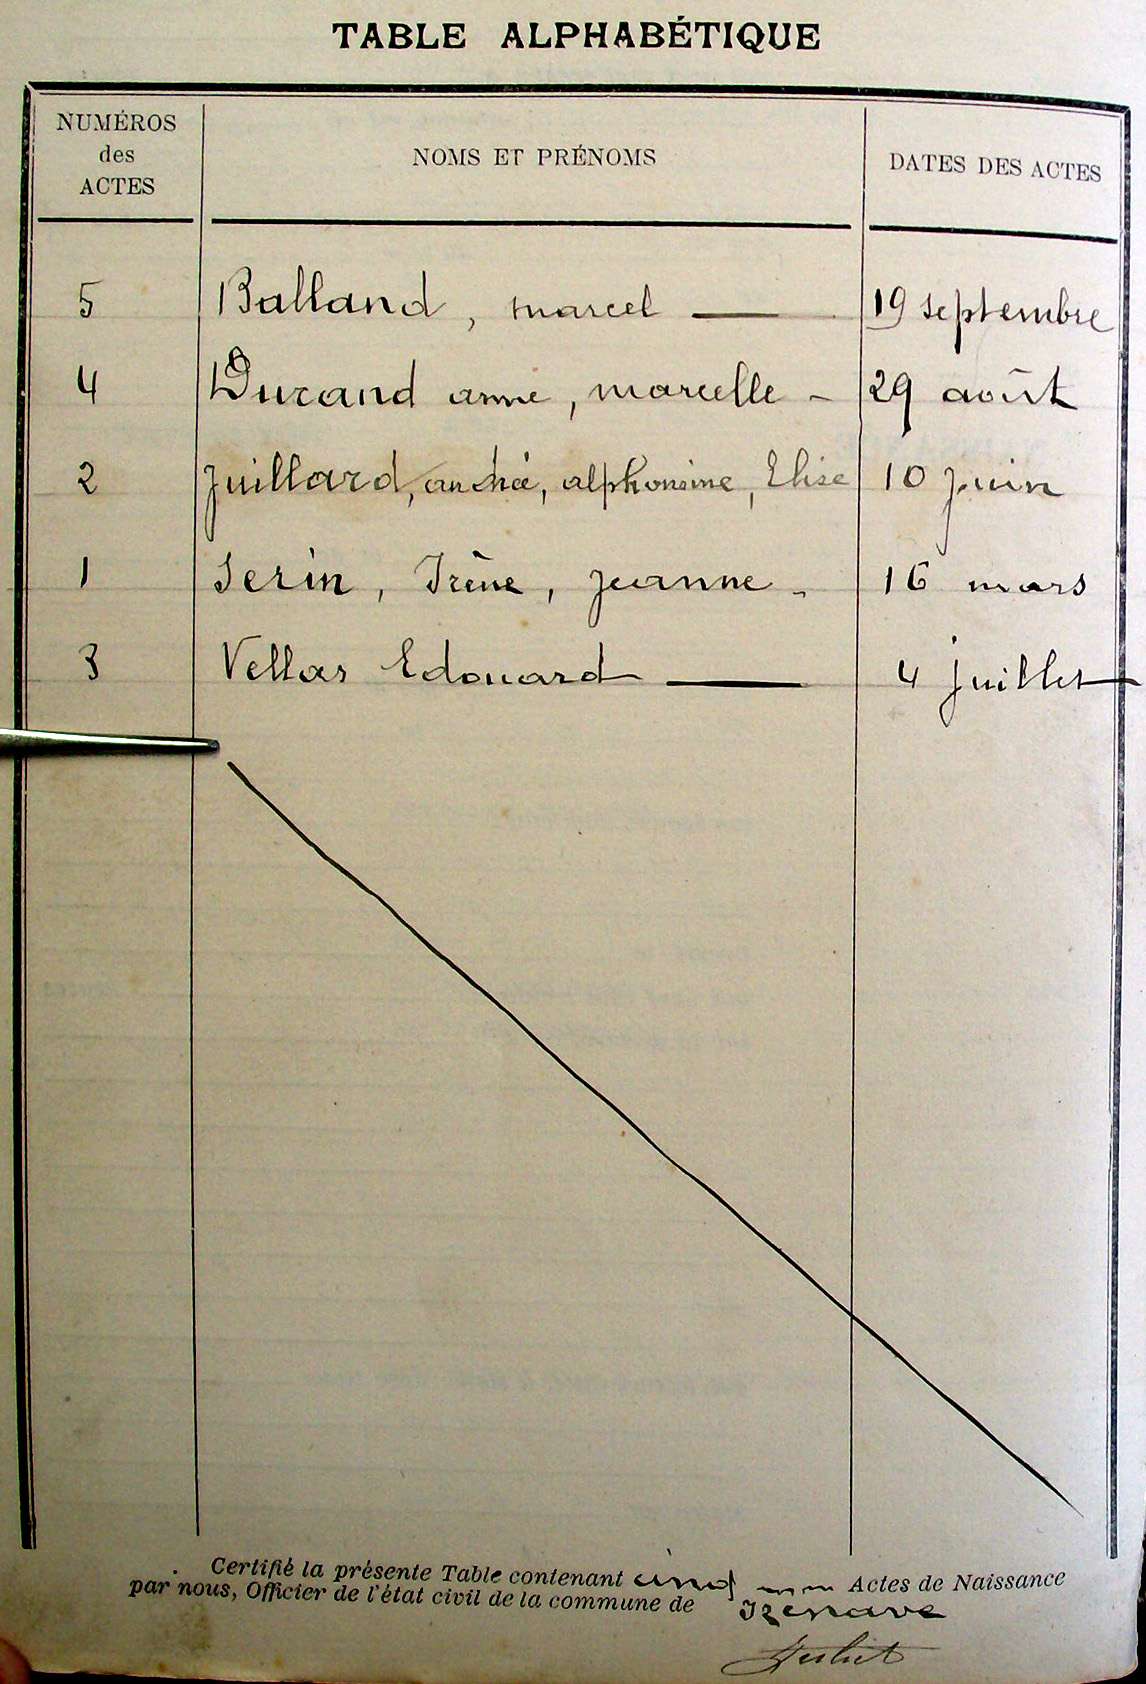 TABLE ALPHABÉTIQUE
NUMÉROS des ACTES NOMS ET PRÉNOMS DATES DES ACTES
5 Balland, marcel — 19 septembre
4 Durand anne, marcelle - 29 août
2 Juillard, andrée, alphonsine, Elise 10 juin
1 Serin, Irène, jeanne - 16 mars
3 Vellas Edouard — 4 juillet
Certifié la présente Table contenant cinq Actes de Naissance
par nous, Officier de l'état civil de la commune de Izenave